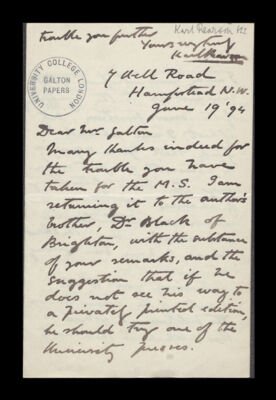 Karl Pearson
trouble you further
Yours very truly
Karl Pearson
UNIVERSITY COLLEGE LONDON
GALTON
PAPERS
7 Well Road
Hampstead N.W.
June 19 '94
Dear Mr Galton
Many thanks indeed for
the trouble you have
taken for the M.S. I am
returning it to the author's
brother, Dr Black of
Brighton, with the substance
of your remarks, and the
suggestion that if he
does not see his way to
a privately printed edition,
he should try one of the
University presses.